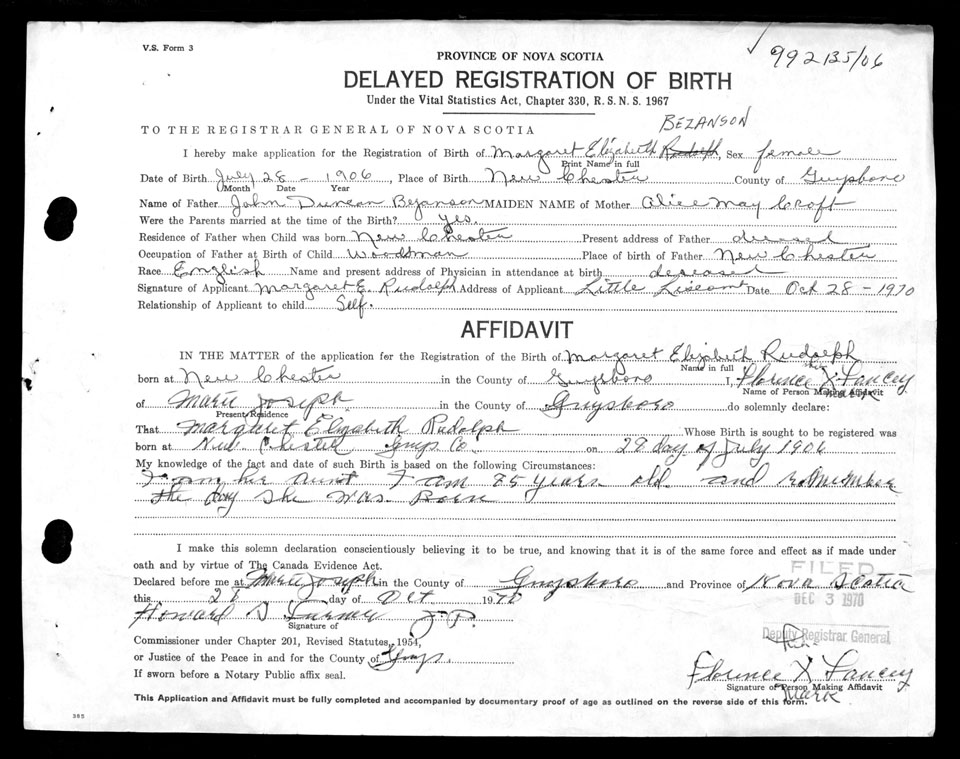 V.S. Form 3
992135/06
PROVINCE OF NOVA SCOTIA
DELAYED REGISTRATION OF BIRTH
Under the Vital Statistics Act, Chapter 330, R.S.N.S. 1967
BEZANSON
TO THE REGISTRAR GENERAL OF NOVA SCOTIA
I hereby make application for the Registration of Birth of Margaret Elizabeth Rudolph, Sex female
Print Name in full
Date of Birth July 28 - 1906, Place of Birth New Chester County of Guysboro
Month Date Year
Name of Father John Duncan Bezanson MAIDEN NAME of Mother Alice May Croft
Were the Parents married at the time of the Birth? yes.
Residence of Father when Child was born New Chester Present address of Father deceased
Occupation of Father at Birth of Child Woodsman Place of birth of Father New Chester
Race English Name and present address of Physician in attendance at birth deseased
Signature of Applicant Margaret E. Rudolph Address of Applicant Little Liscomb Date Oct 28 - 1970
Relationship of Applicant to child Self.
AFFIDAVIT
IN THE MATTER of the application for the Registration of the Birth of Margaret Elizabeth Rudolph
Name in full
born at New Chester in the County of Guysboro I, Florence X Fancey
her mark
Name of Person Making Affidavit
of Marie Joseph in the County of Guysboro do solemnly declare:
Present Residence
That Margaret Elizabeth Rudolph Whose Birth is sought to be registered was
born at New Chester Guys Co. on 28 day of July 1906
My knowledge of the fact and date of such Birth is based on the following Circumstances:
I am her aunt I am 85 years old and remember
the day she was Born
I make this solemn declaration conscientiously believing it to be true, and knowing that it is of the same force and effect as if made under
oath and by virtue of The Canada Evidence Act.
FILED
Declared before me at Marie Joseph in the County of Guysboro and Province of Nova Scotia
this 28 day of Oct 1970
DEC 3 1970
Howard D Turner J.P.
Signature of
Deputy Registrar General
Commissioner under Chapter 201, Revised Statutes, 1954,
or Justice of the Peace in and for the County of Guys.
If sworn before a Notary Public affix seal.
Florence X Fancey
Signature of Person Making Affidavit
Mark
This Application and Affidavit must be fully completed and accompanied by documentary proof of age as outlined on the reverse side of this form.